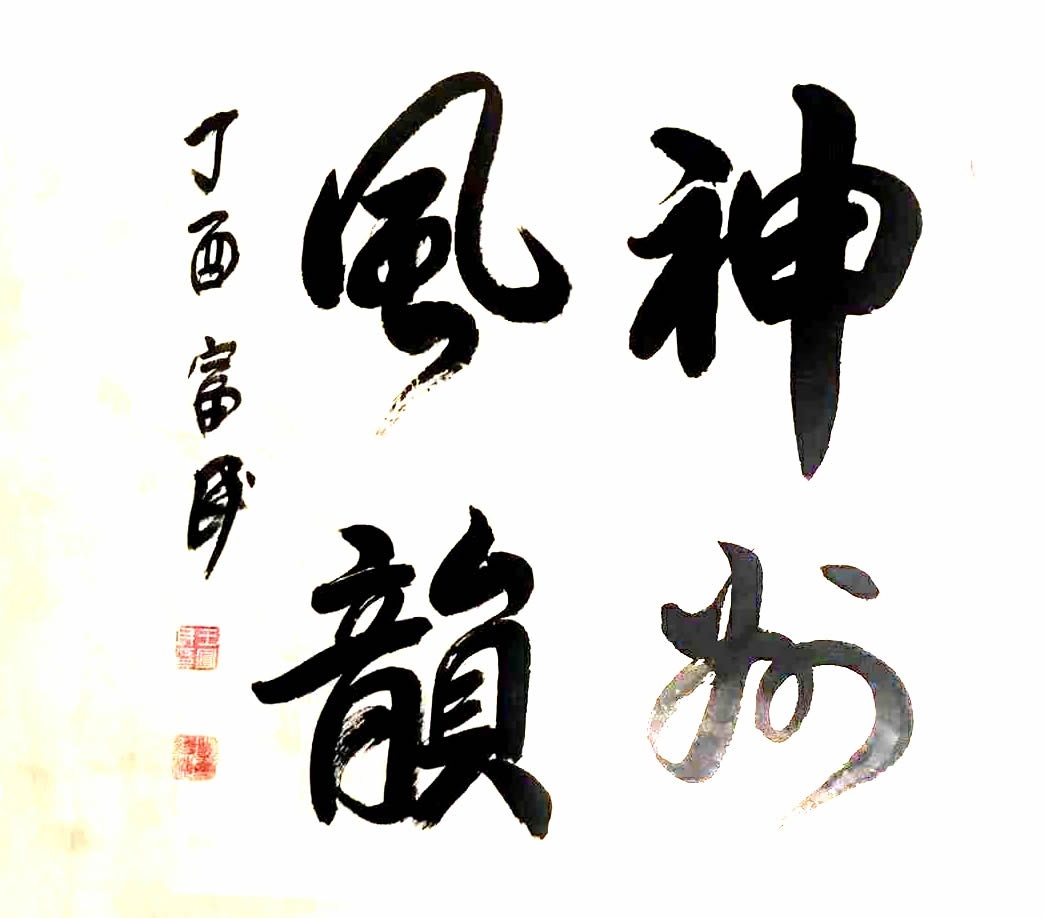 神州
風韻
丁酉 富民